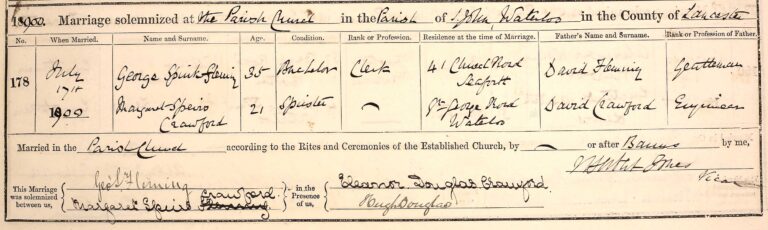 1900. Marriage solemnized at the Parish Church in the Parish of S. John Waterloo in the County of Lancaster
No. When Married. Name and Surname. Age. Condition. Rank or Profession. Residence at the time of Marriage. Father's Name and Surname. Rank or Profession of Father.
178 July 17th 1900 George Spink Fleming 35 Bachelor Clerk 41 Church Road Seaforth David Fleming Gentleman
Margaret Speirs Crawford 21 Spinster — George Road Waterloo David Crawford Engineer
Married in the Parish Church according to the Rites and Ceremonies of the Established Church, by — or after Banns by me,
Jones Vicar
This Marriage was solemnized between us, Geo S Fleming in the Presence of us, Eleanor Douglas Crawford
Margaret Speirs Crawford Fleming Hugh Douglas